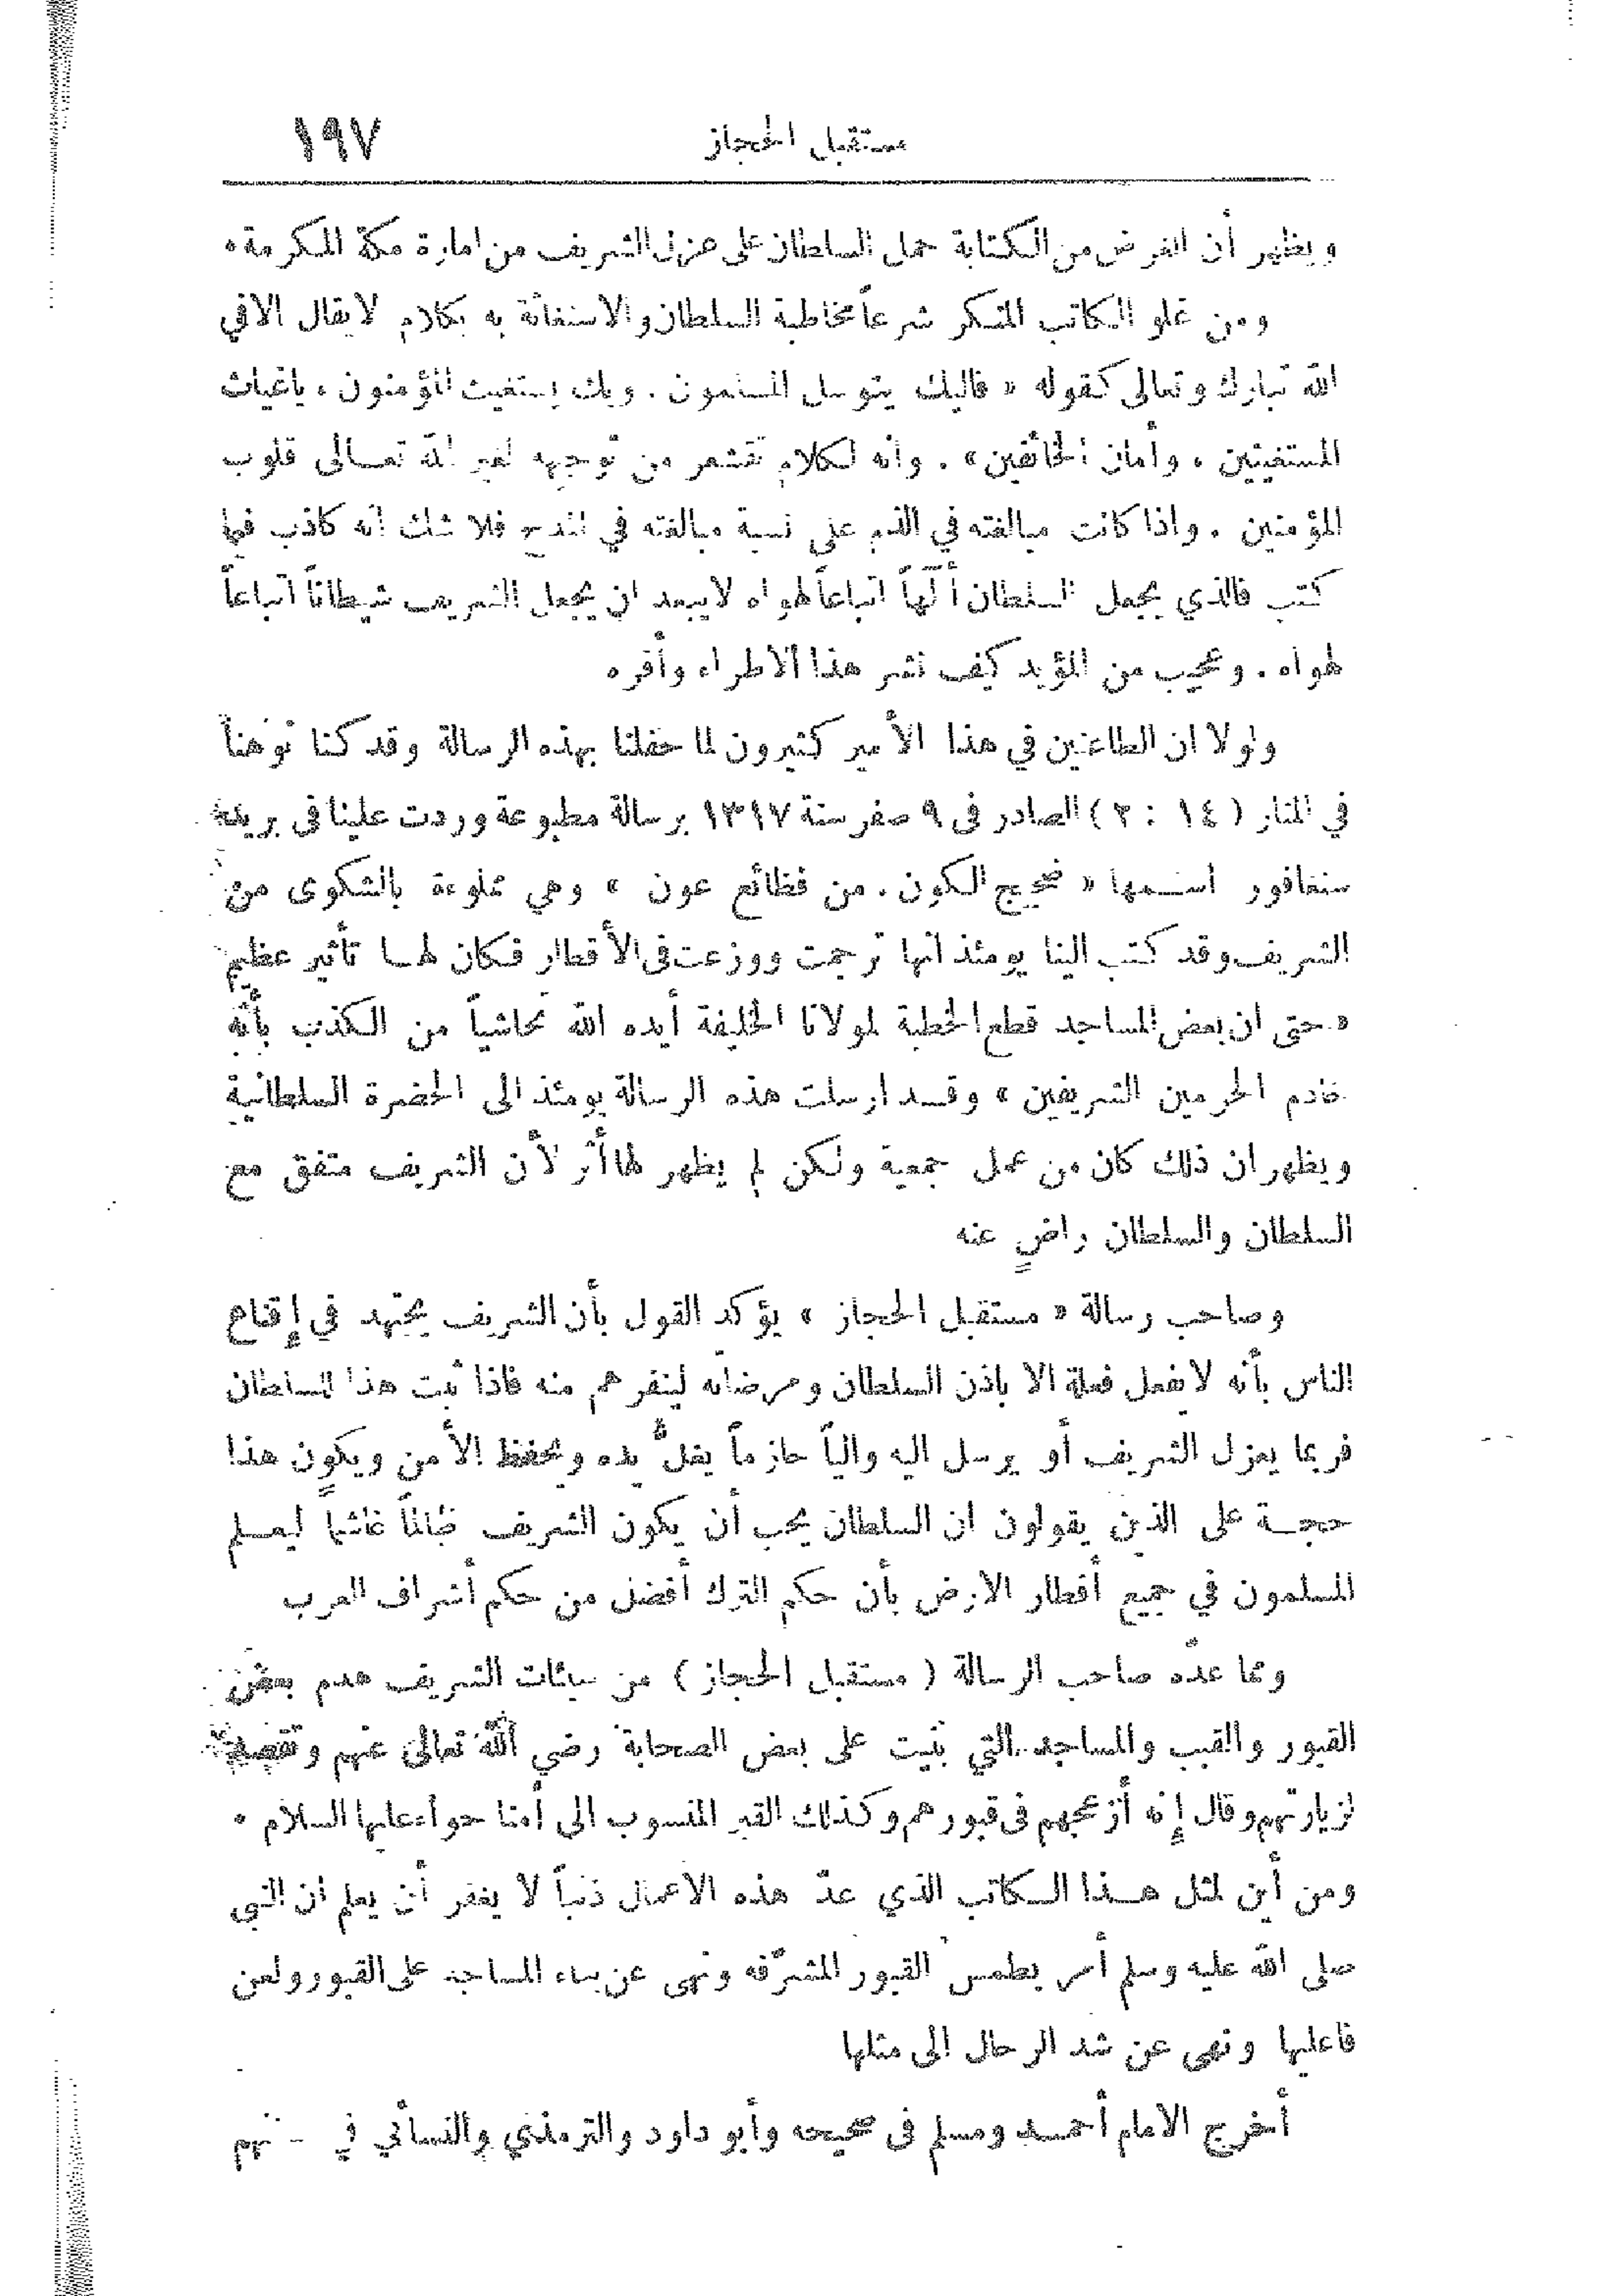 مستقبل الحجاز ١٩٧
ويظهر أن الغرض من الكتابة حمل السلطان على عزل الشريف من امارة مكة المكرمة ٠
ومن غلو الكاتب المنكر شرعاً مخاطبة السلطان والاستغاثة به بكلام لا يقال الا في
الله تبارك وتعالى كقوله « فاليك يتوسل المسلمون . وبك يستغيث المؤمنون ، ياغياث
المستغيثين ، وأمان الخائفين» . وانه لكلام تقشعر من توجيهه لغير الله تعالى قلوب
المؤمنين . واذا كانت مبالغته في الذم على نسبة مبالغته في المدح فلا شك انه كاذب فيما
كتب فالذي يجعل السلطان الٓهاً اتباعاً لهواه لا يبعد ان يجعل الشريف شيطاناً اتباعاً
لهواه . وعجيب من المؤيد كيف نشر هذا الاطراء وأقره
ولولا ان الطاعنين في هذا الأمير كثيرون لما حفلنا بهذه الرسالة وقد كنا نوهنا
في المنار ( ١٤ : ٢ ) الصادر فى ٩ صفر سنة ١٣١٧ برسالة مطبوعة وردت علينا فى بريد
سنغافور اسمها « ضجيج الكون . من فظائع عون » وهي مملوءة بالشكوى من
الشريف وقد كتب الينا يومئذ انها ترجمت ووزعت فى الأقطار فكان لها تأثير عظيم
« حتى ان بعض المساجد قطع الخطبة لمولانا الخليفة أيده الله تحاشياً من الكذب بأنه
خادم الحرمين الشريفين » وقد ارسلت هذه الرسالة يومئذ الى الحضرة السلطانية
ويظهر ان ذلك كان من عمل جمعية ولكن لم يظهر لها أثر لأن الشريف متفق مع
السلطان والسلطان راضٍ عنه
وصاحب رسالة « مستقبل الحجاز » يؤكد القول بأن الشريف يجتهد في إقناع
الناس بأنه لا يفعل فعلة الا باذن السلطان ومرضاته لينفرهم منه فاذا ثبت هذا للسلطان
فربما يعزل الشريف أو يرسل اليه والياً حازماً يغلُّ يده ويحفظ الأمن ويكون هذا
حجة على الذين يقولون ان السلطان يحب أن يكون الشريف ظالماً غاشما ليعلم
المسلمون في جميع أقطار الارض بأن حكم الترك أفضل من حكم أشراف العرب
ومما عدّه صاحب الرسالة ( مستقبل الحجاز ) من سيئات الشريف هدم بعض
القبور والقبب والمساجد التي بنيت على بعض الصحابة رضي الله تعالى عنهم وتقصد
لزيارتهم وقال إنه أزعجهم فى قبورهم وكذلك القبر المنسوب الى أمنا حواء عليها السلام ٠
ومن أين لمثل هذا الكاتب الذي عدّ هذه الاعمال ذنباً لا يغفر أن يعلم ان النبي
صلى الله عليه وسلم أمر بطمس القبور المشرّفه ونهى عن بناء المساجد على القبور ولعن
فاعليها ونهى عن شد الرحال إلى مثلها
أخرج الامام أحمد ومسلم فى صحيحه وأبو داود والترمذي والنسائي في